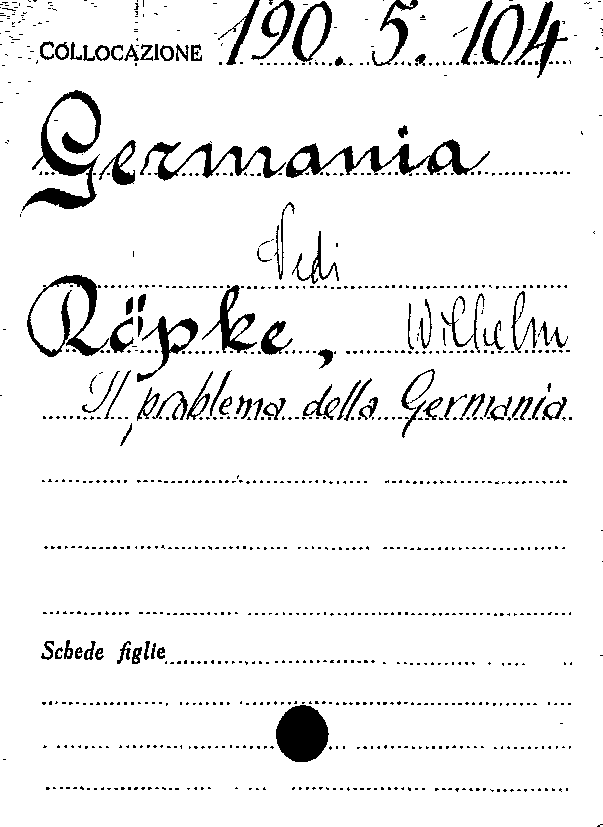 COLLOCAZIONE 190. 5. 104
Germania
Vedi
Röpke, Wilhelm
Il problema della Germania
Schede figlie